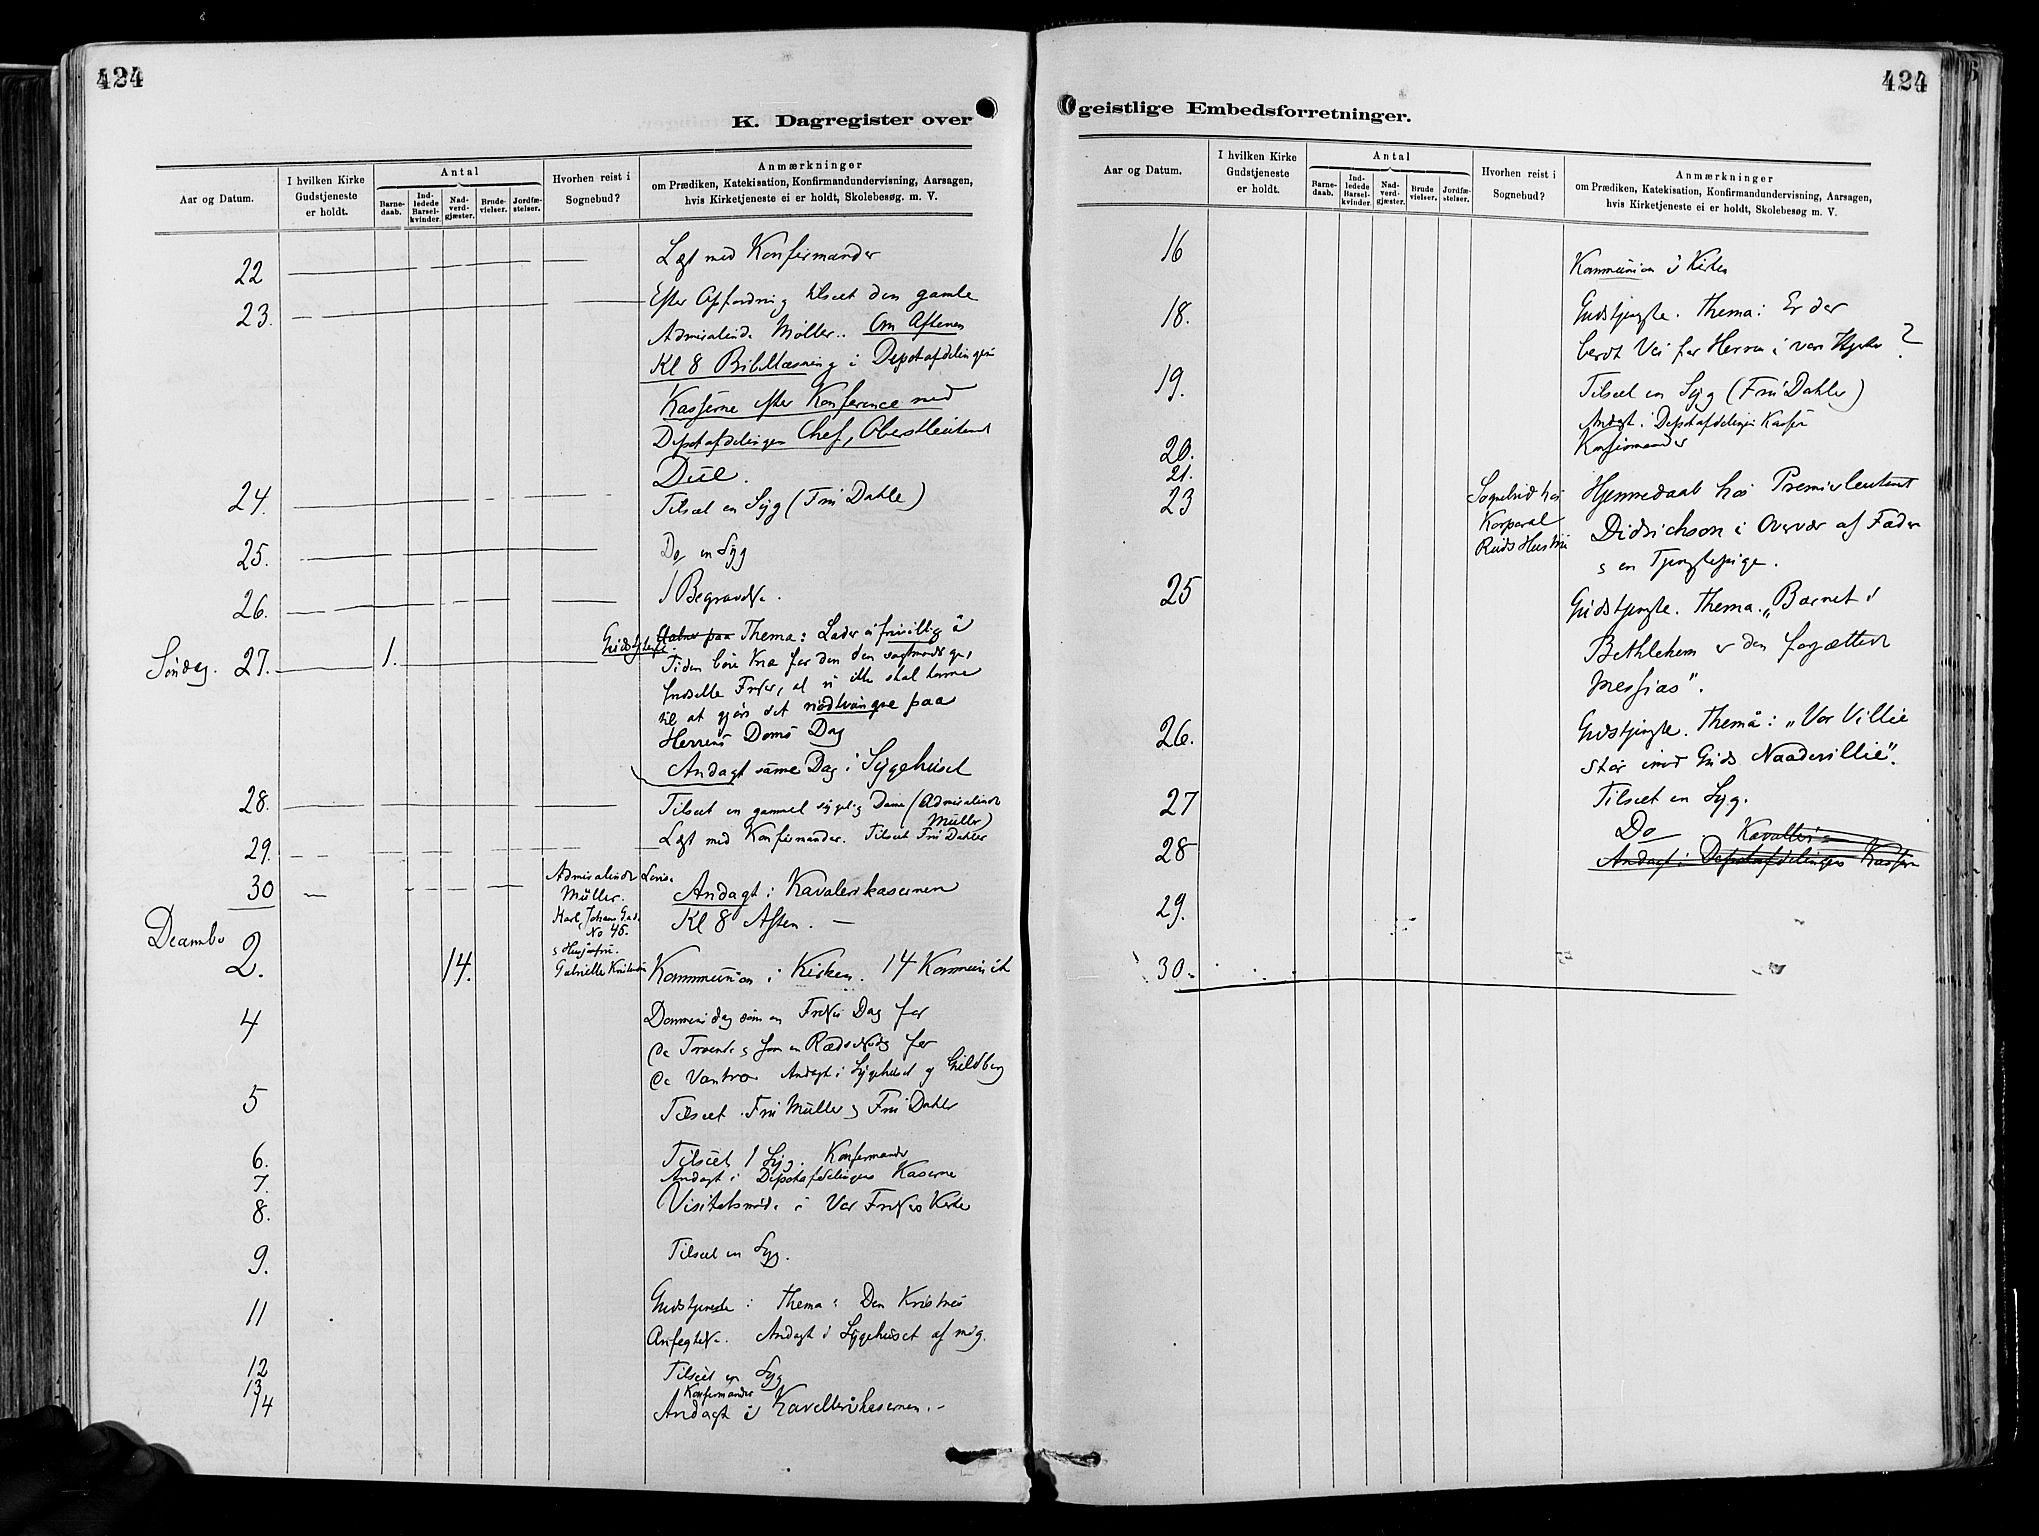 424
K. Dagregister over
Aar og Datum.
I hvilken Kirke
Gudstjeneste
er holdt.
Antal
Barne-
daab.
Ind-
ledede
Barsel-
kvinder.
Nad-
verd-
gjæster.
Brude-
vielser.
Jordfæ-
stelser.
Hvorhen reist i
Sognebud?
Anmærkninger
om Prædiken, Katekisation, Konfirmandundervisning, Aarsagen,
hvis Kirketjeneste ei er holdt, Skolebesøg. m. V.
22 Læst med Konfirmander
23. Efter Opfordring tilseet den gamle
Admiralinde Møller.. Om Aftenen
Kl 8 Bibellæsning i Depotafdelingens
Kaserne efter Konference med
Depotafdelingens Chef, Oberstleutenant
24. Tilseet en Syg (Fru Dahle)
25. Do en Syg
26. 1 Begravelse.
Søndag. 27. 1. Gudstjeneste. Thema: Lader os frivillig i
Tiden bøie Knæ for den
Frelser, at vi ikke skal komme
til at gjøre det nødtvungne paa
Herrens Doms Dag
Andagt samme Dag i Sygehuset
28. Tilseet en gammel sygelig Dame (Admiralinde
Müller)
29. Læst med Konfirmander. Tilseet Fru Dahler
30 Admiralinde
Müller.
Karl Johans Gade
No 45.
Andagt i Kavallerikasernen
Kl 8 Aften. —
2. 14.
Gabrielle
Kommunion i Kirken. 14
4 Dommens dag som en Frelses Dag for
de Troende og som en Rædselsdag for
de Vantro Andagt i Sygehuset
5 Tilseet Fru Müller og Fru Dahler
6. Tilseet 1 Syg. Konfirmander
7. Andagt i Depotafdelingens Kaserne
8. i Vor Frelsers Kirke
9. Tilseet en Syg.
11 Gudstjeneste: Thema: Den Kristnes
Anfegtelse. Andagt i Sygehuset af mig.
12 Tilseet en Syg
13 Konfirmander
14 Andagt i Kavallerikasernen. -
424
geistlige Embedsforretninger.
Aar og Datum.
I hvilken Kirke
Gudstjeneste
er holdt.
Antal
Barne-
daab.
Ind-
ledede
Barsel-
kvinder.
Nad-
verd-
gjæster.
Brude
vielser.
Jordfæ-
stelser.
Hvorhen reist i
Sognebud?
Anmærkninger
om Prædiken, Katekisation, Konfirmandundervisning, Aarsagen,
hvis Kirketjeneste ei er holdt, Skolebesøg m. V.
16 Kommunion i Kirken
18. Gudstjeneste. Thema: Er der
beredt Vei for Herren i vore Hjerter?
19. Tilseet en Syg (Fru Dahler)
Andagt i Depotafdelingens Kaserne
20. Konfirmander
21.
23 Sognebud hos
Korporal
Ruds Hustru
Hjemmedaab hos Premierleutenant
Didrichson i Overvær af Fader
og en Tjenestepige.
25 Gudstjeneste. Thema. „Barnet i
Bethlehem er den forjættede
Messias".
26. Gudstjeneste. Thema: „Vor Villie
Staar imod Guds Naadevillie".
27 Tilseet en Syg.
28 Do Kavalleri-
Andagt i Depotafdelingens Kaserne
29.
30.